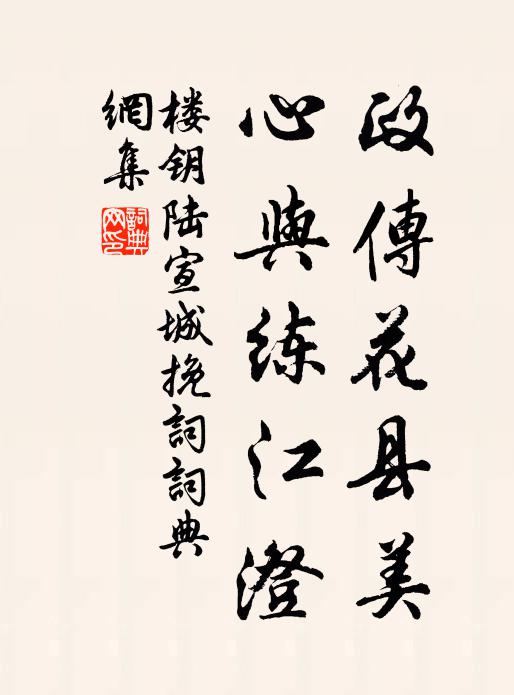 政傳花县美
心與练江澄
楼钥陆宣城挽詞詞典
網集
詞典网印